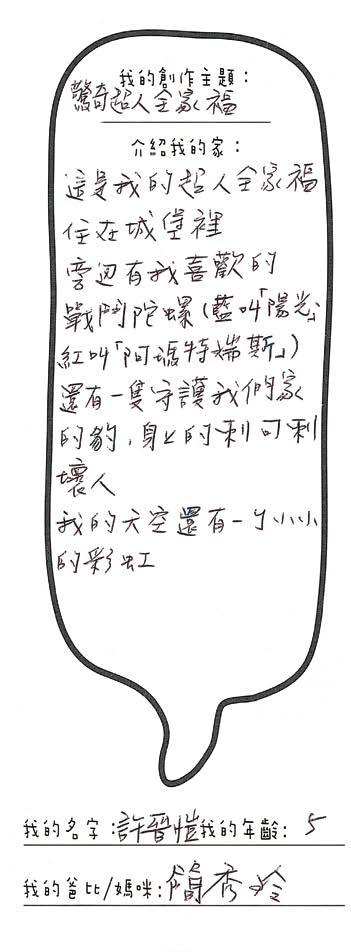 我的創作主題：
驚奇超人全家福
介紹我的家：
這是我的超人全家福
住在城堡裡
旁边有我喜歡的
戰鬥陀螺(藍叫「陽光」
紅叫「阿瑪特瑞斯」)
還有一隻守護我們家
的豹，身上的刺可刺
壞人
我的天空還有一ㄍ小小
的彩虹
我的名字：許晉愷 我的年齡：5
我的爸比/媽咪：簡秀玲